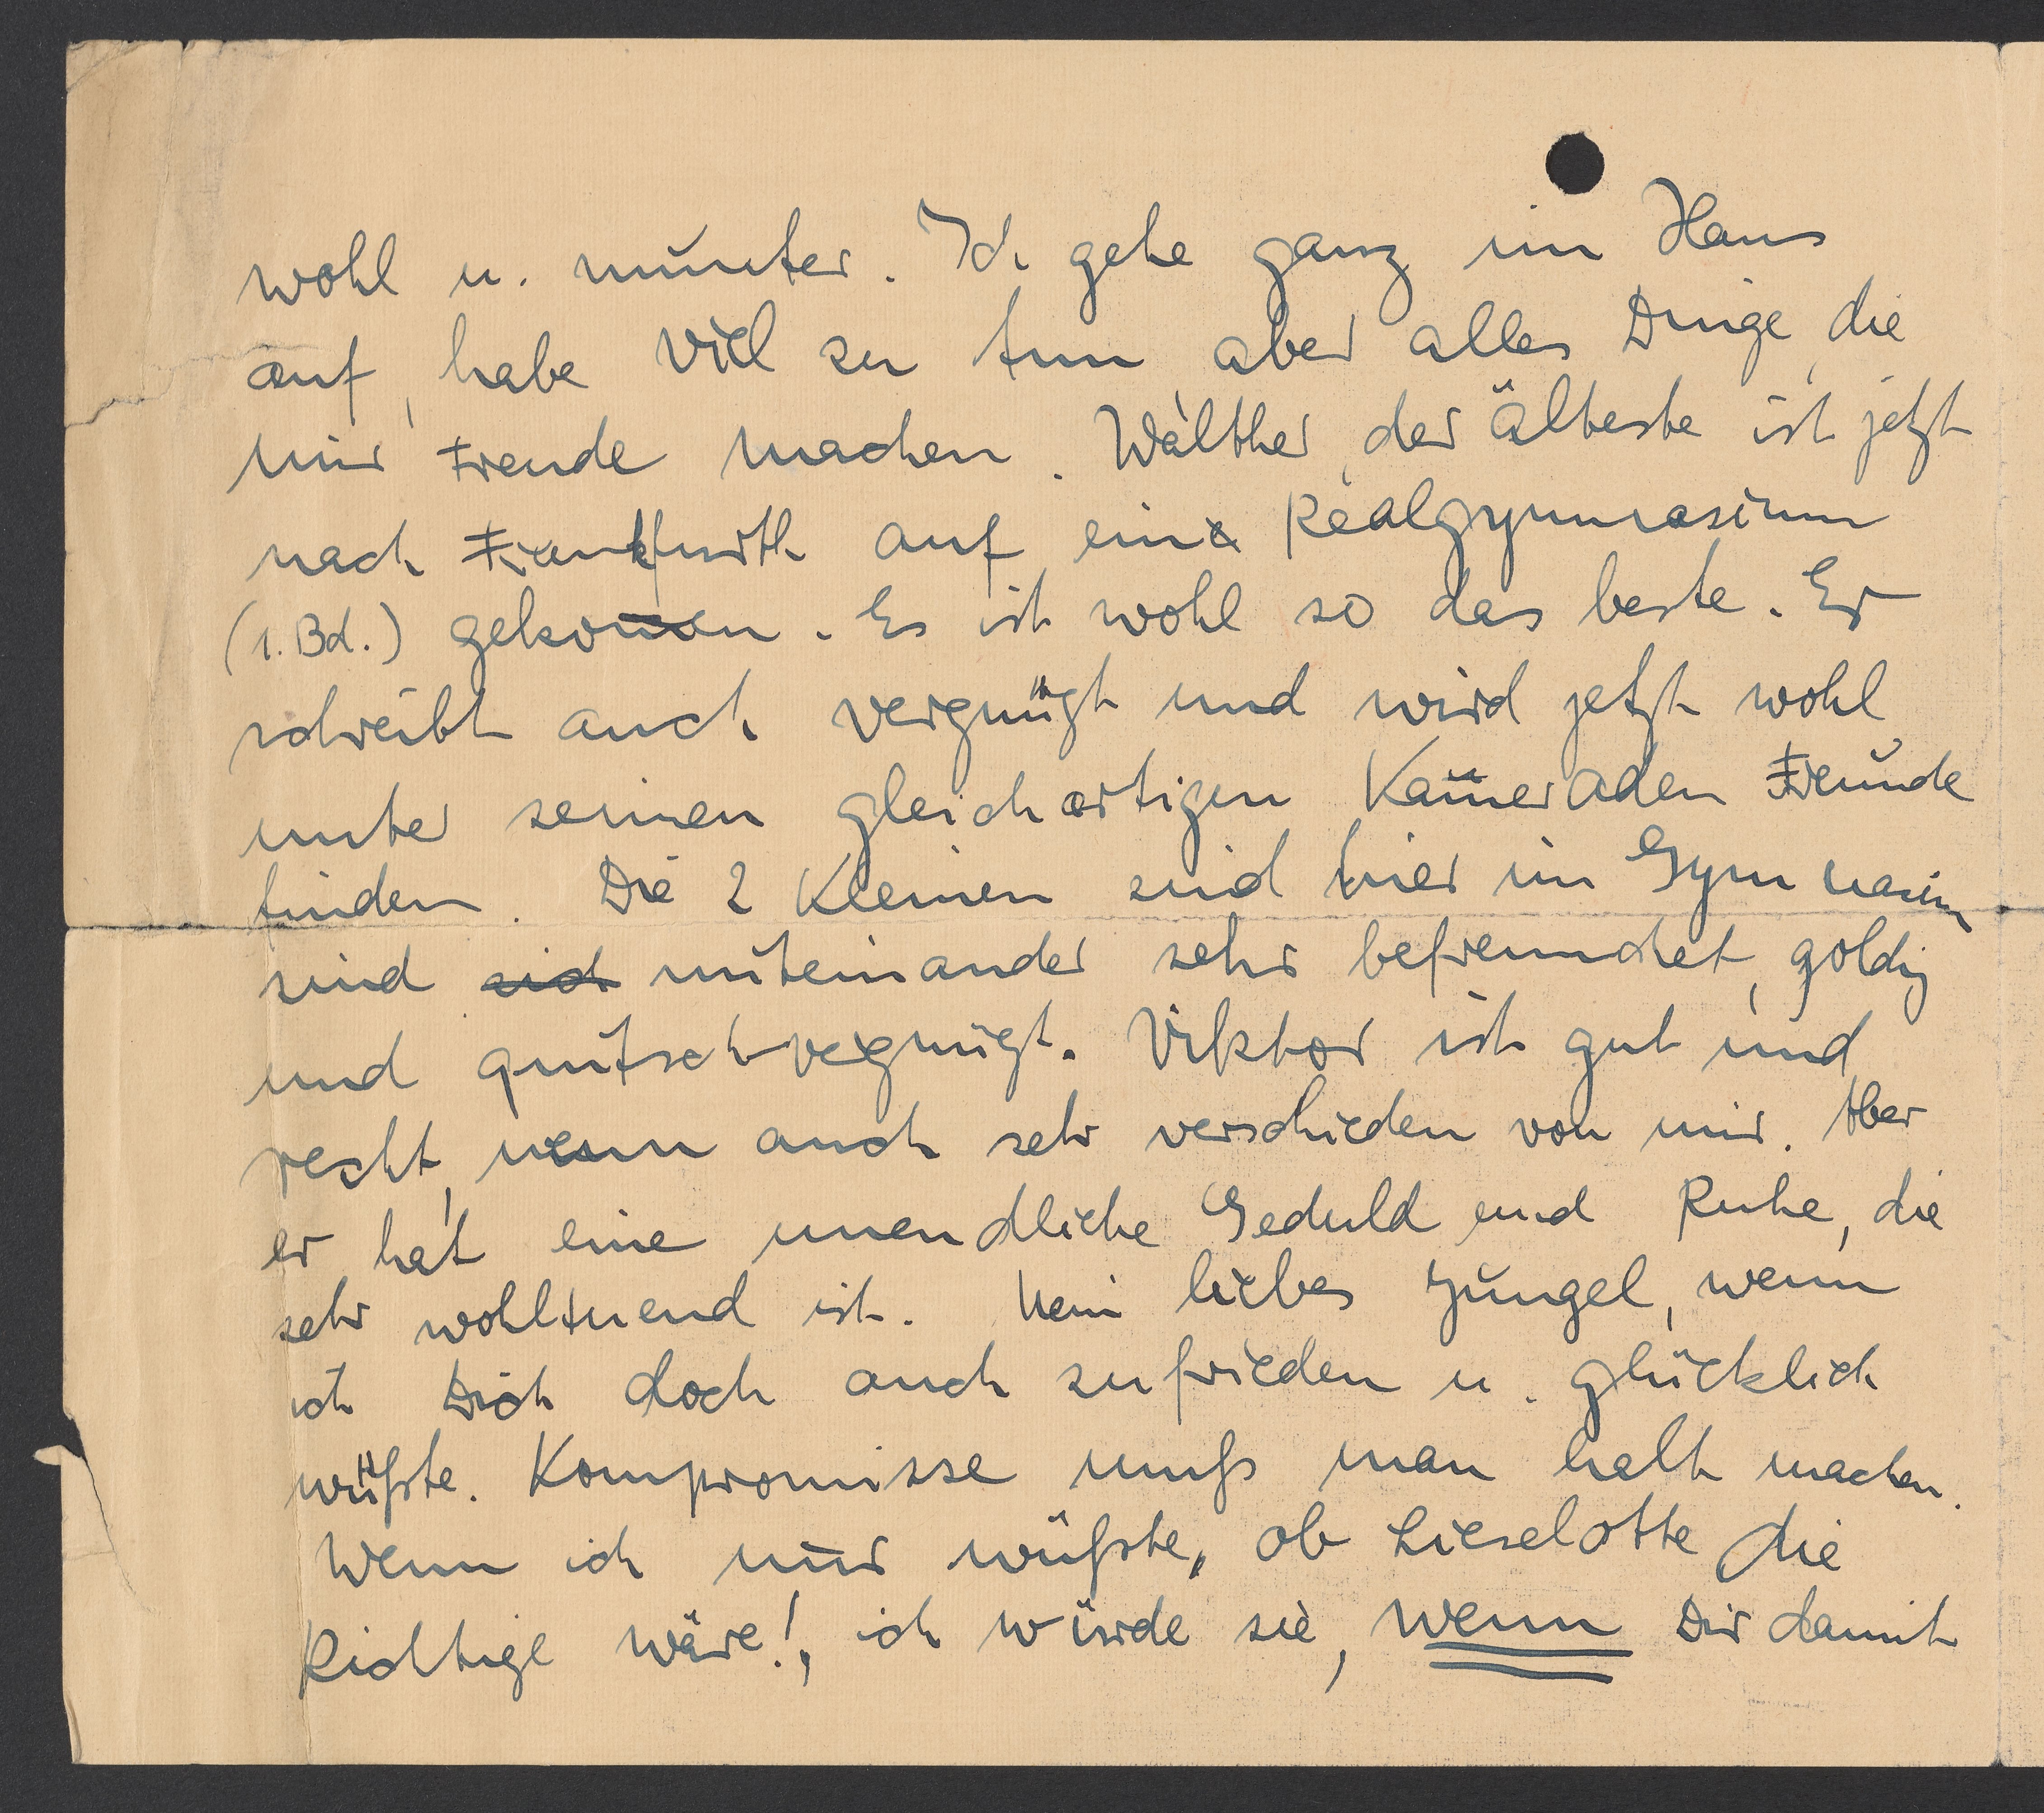 wohl u. munter. Ich gehe ganz im Haus
auf, habe viel zu tun aber alles Dinge, die
mir Freude machen. Walther, der Älteste ist jetzt
nach Frankfurth auf ein Realgymnasium
(i. Bd.) gekommen. Es ist wohl so das beste. Er
schreibt auch vergnügt und wird jetzt wohl
unter seinen gleichartigen Kameraden Freunde
finden. Die 2 Kleinen sind hier im Gymnasium
sind miteinander sehr befreundet, goldig
und quitschvergnügt. Viktor ist gut und
recht, wenn auch sehr verschieden von mir. Aber
er hat eine unendliche Geduld und Ruhe, die
sehr wohltuend ist. Mein liebes Jungel, wenn
ich Dich doch auch zufrieden u. glücklich
wüßte. Kompromisse muß man halt machen.
Wenn ich nur wüßte, ob Lieselotte die
Richtige wäre!, ich würde sie, wenn Dir damit